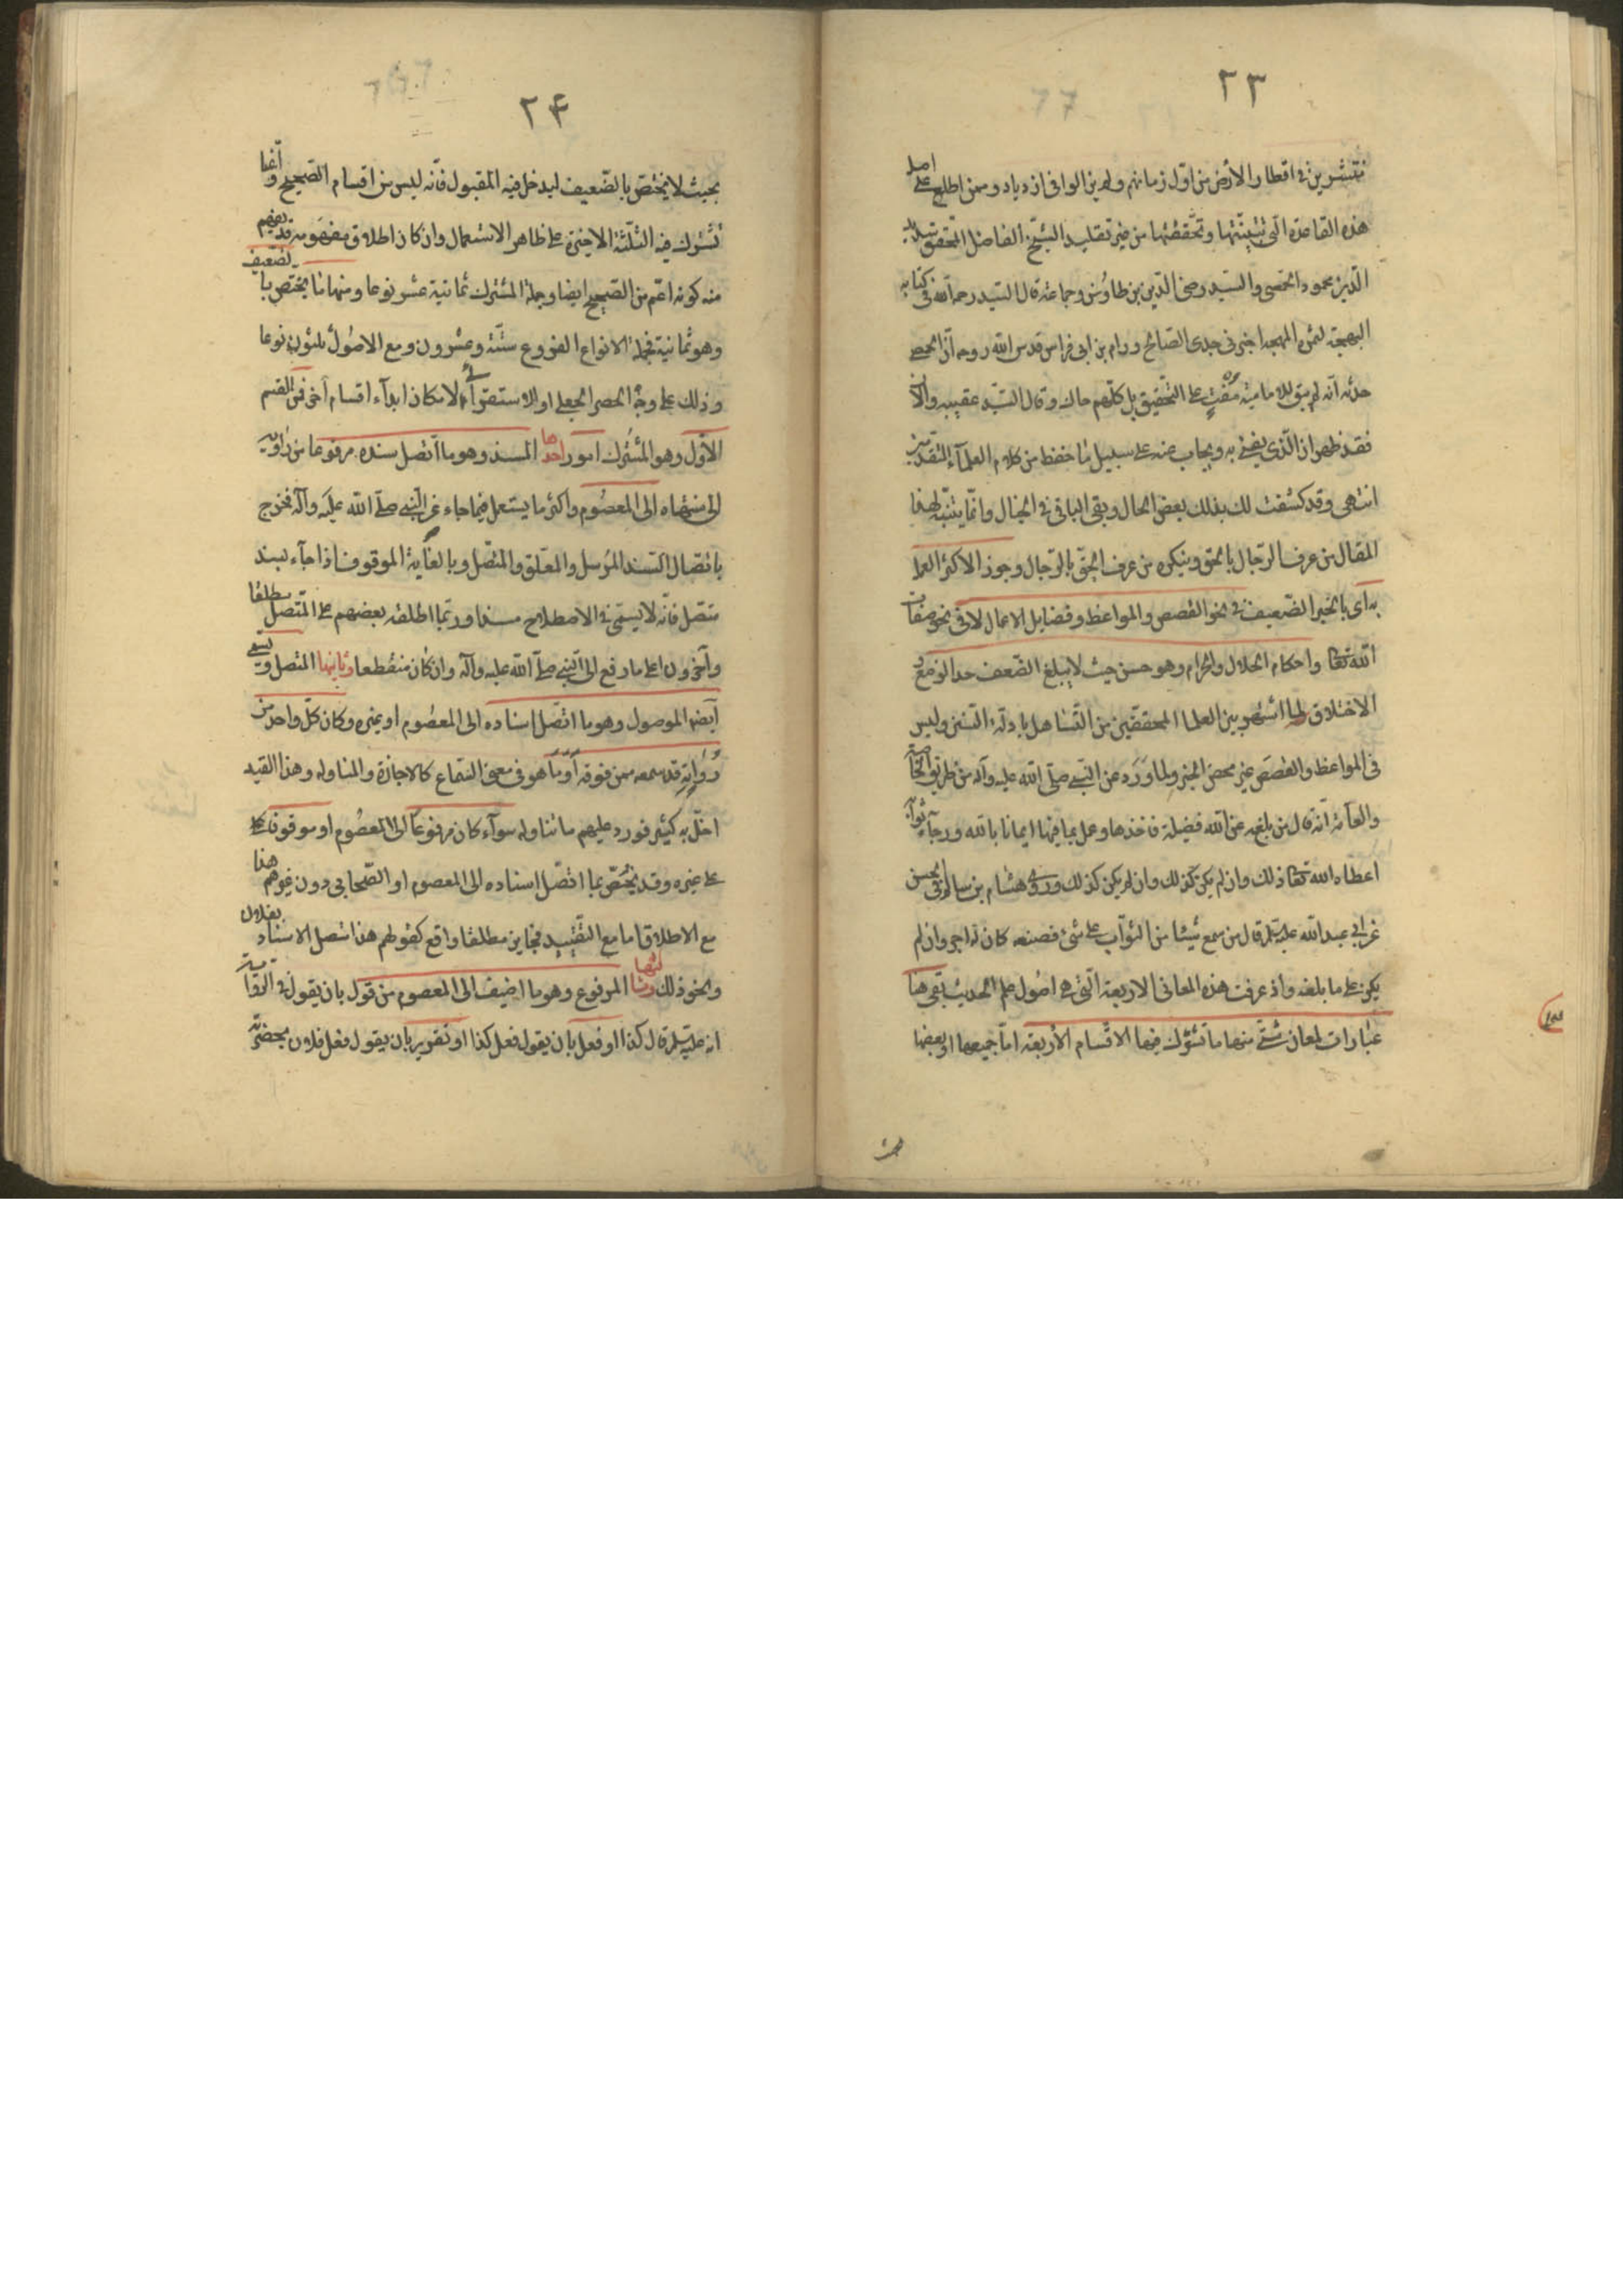 ٢٣
منتشرين في اقطار الأرض من اول زمانهم ولم يزالوا في ازدياد وممن اطلع على اصل
هذه القاعدة التي تبينتها وتحققتها من غير تقليد الشيخ الفاضل المحقق سديد
الدين محمود الحمصي والسيد رضي الدين بن طاوس وجماعة قال السيد رحمه الله في كتابه
البهجة لثمرة المهجة اخبرني جدي الصالح ورام بن ابي فراس قدس الله روحه ان الحمصي
حدثه انه لم يبق للامامية مفت على التحقيق بل كلهم حاك وقال السيد عقيبه والآن
فقد ظهر ان الذي يفتي به ويجاب عنه على سبيل ما حفظ من كلام العلماء المتقدمين
انتهى وقد كشفت لك بذلك بعض الحال وبقي الباقي في الخيال وانما يتنبه لهذا
المقال من عرف الرجال بالحق وينكره من عرف الحق بالرجال وجوز الاكثر العمل
به اى بالخبر الضعيف في نحو القصص والمواعظ وفضايل الاعمال لا في نحو صفات
الله تعالى واحكام الحلال والحرام وهو حسن حيث لا يبلغ الضعف حد الوضع و
الاختلاق لما اشتهر بين العلماء المحققين من التساهل بادلة السنن وليس
في المواعظ والقصص غير محض الخير ولما ورد عن النبي صلى الله عليه وآله من طريق الخاصة
والعامة انه قال من بلغه عن الله فضيلة فاخذها وعمل بما فيها ايمانا بالله ورجاء ثوابه
اعطاه الله تعالى ذلك وان لم يكن كذلك وان لم يكن كذلك وروى هشام بن سالم في الحسن
عن ابي عبد الله عليه السلم قال من سمع شيئا من الثواب على شيء فصنعه كان له اجره وان لم
يكن على ما بلغه واذ عرفت هذه المعاني الاربعة التي هي اصول علم الحديث بقي هنا
عبارات لمعان شتى منها ما تشترك فيها الاقسام الأربعة اما جميعها او بعضها
٢۴
بحيث لا يختص بالضعيف ليدخل فيه المقبول فانه ليس من اقسام الصحيح وانما
تشترك فيه الثلثة الاخيرة على ظاهر الاستعمال وان كان اطلاق مفهومه قد يفهم
منه كونه اعم من الصحيح ايضا وجملة المشترك ثمانية عشر نوعا ومنها ما يختص بالضعيف
وهو ثمانية فجملة الانواع الفروع ستة وعشرون ومع الاصول ثلثون نوعا
وذلك على وجه الحصر الجعلي او الاستقرائي لامكان ابداء اقسام أخر فمن القسم
الأول وهو المشترك امور احدها المسند وهو ما اتصل سنده مرفوعا من راويه
الى منتهاه الى المعصوم واكثر ما يستعمل فيما جاء عن النبي صلى الله عليه وآله فخرج
باتصال السند المرسل والمعلق والمتصل وبالغاية الموقوف اذا جاء بسند
متصل فانه لا يسمى في الاصطلاح مسندا وربما اطلقه بعضهم على المتصل مطلقا
وآخرون على ما رفع الى النبي صلى الله عليه وآله وان كان منقطعا وثانيها المتصل ويسمى
أيضا الموصول وهو ما اتصل اسناده الى المعصوم او غيره وكان كل واحد من
رواته قد سمعه ممن فوقه أو ما هو في معنى السماع كالاجازة والمناولة وهذا القيد
اخل به كثير فورد عليهم ما تناوله سواء كان مرفوعا الى المعصوم او موقوفا على
على غيره وقد يختص بما اتصل اسناده الى المعصوم او الصحابي دون غيرهم هذا
مع الاطلاق اما مع التقييد فجايز مطلقا واقع كقولهم هذا متصل الاسناد بفلان
ونحو ذلك وثالثها المرفوع وهو ما اضيف الى المعصوم من قول بان يقول في الرواية
انه عليه السلم قال كذا او فعل بان يقول فعل كذا او تقرير بان يقول فعل فلان بحضرته